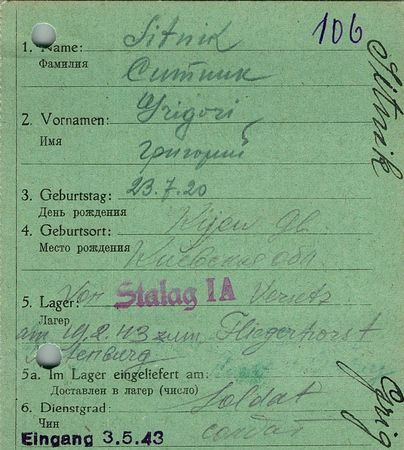 106
1. Name: Sitnik
Фамилия Ситник
2. Vornamen: Grigori
Имя Григорий
3. Geburtstag: 23.7.20
День рождения
4. Geburtsort: Kijew
Место рождения Киевская обл.
5. Lager: Von Stalag IA Versetz
Лагерь am 19.2.43 zum Fliegerhorst
5a. Im Lager eingeliefert am:
Доставлен в лагер (число)
6. Dienstgrad: Soldat
Чин солдат
Eingang 3.5.43
Sitnik
Grig